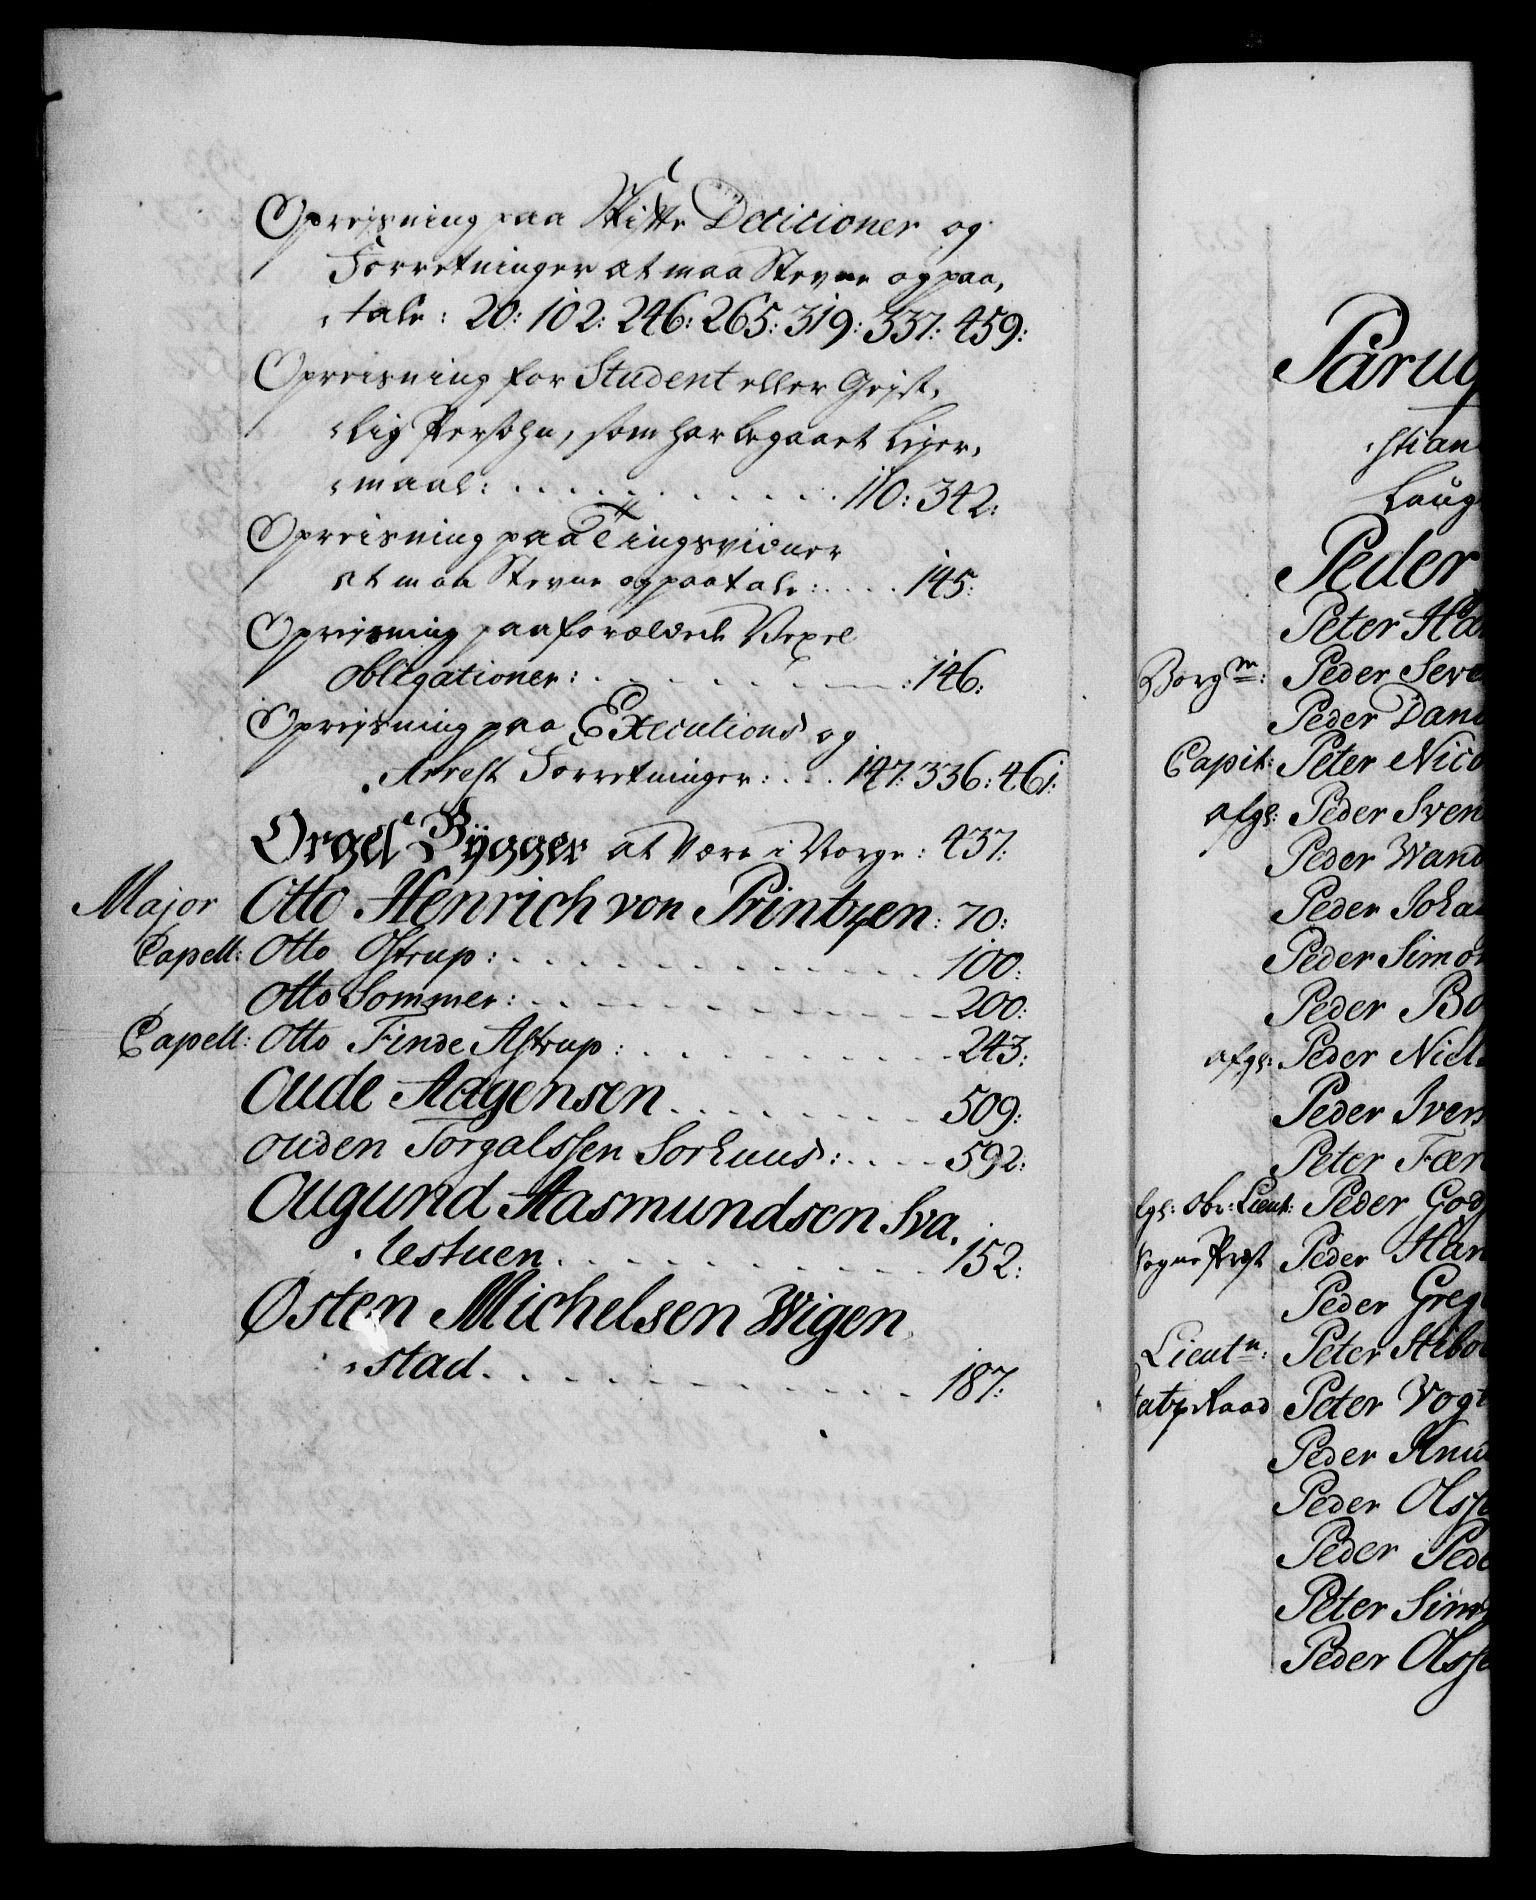 Opreisning paa Skifte Decicioner og
Forretninger at maa Stevne og paa,
tale: 20: 102: 246: 265: 319: 337: 459:
Opreisning for Student eller Geist,
lig Persohn, som har begaaet Lejer,
maal: 110: 342:
Opreisning paa Tingsvidner
at maa Stevne og paatale: 145:
Opreisning paa forældede Vexel
obligationer: 146:
Opreisning paa Executions og
Arrest Forretninger: 147: 336: 461:
Orgel Bÿgger at Være i Norge: 437:
Major Otto Henrich von Printzen: 70:
Capell: Otto Ostrup: 100:
Otto Sommer: 200:
Capell: Otto Finde Astrup: 243:
Oude Aagensen 509:
Ouden Torgalssen Sorknus: 592:
Ougund Aasmundsen Sva,
lestuen 152:
Østen Michelsen Wigen
stad 187:
Parug
stian
Laug
Peder
Peter Han
Borgm: Peder Seve
Peder Dan
Capit: Peter Nico
afgl: Peder Sven
Peder Wand
Peder Joha
Peder Simon
Peder Bo
afgl: Peder Niel
Peder Iver
Peter Fær
fgl: Obr: Lieut: Peder God
Sogne Præst Peder Han
Peder Greg
Lieutn: Peter Stibo
tatz Raad Peter Vogt
Peder Knud
Peder Olss
Peder Pede
Peter Sim
Peder Olss